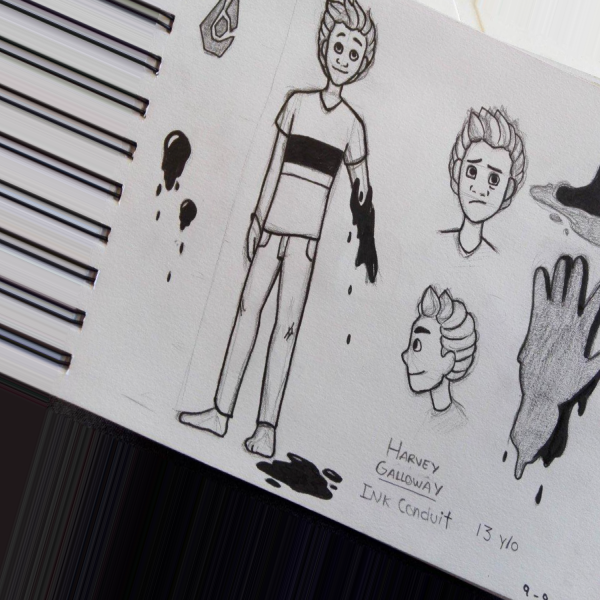 Harvey
Galloway
Ink Conduit
13 y/o